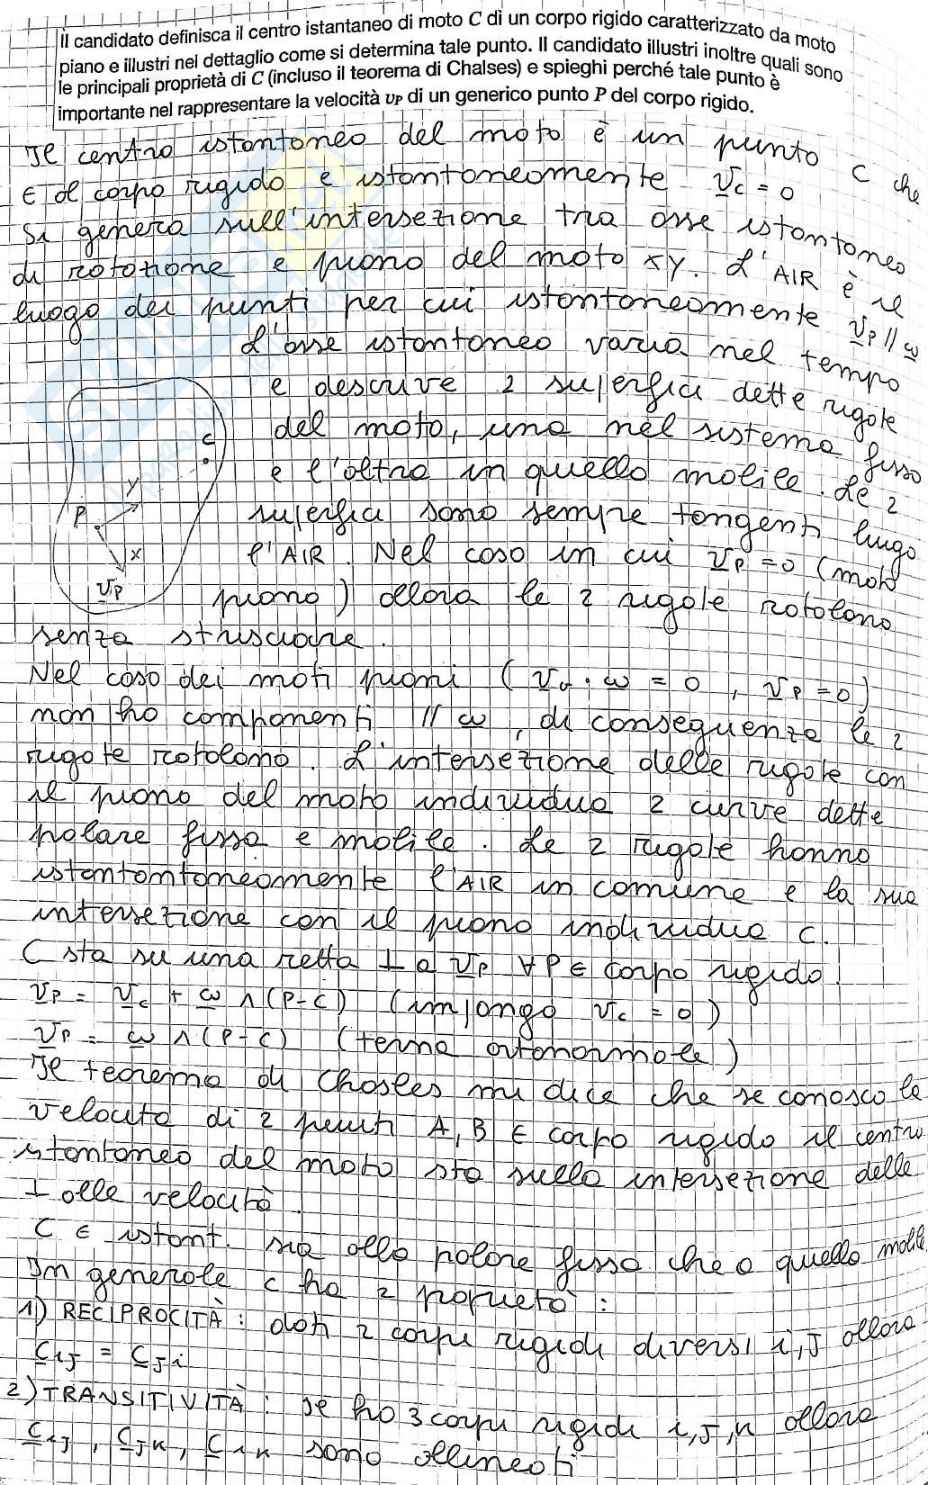 Il candidato definisca il centro istantaneo di moto C di un corpo rigido caratterizzato da moto
piano e illustri nel dettaglio come si determina tale punto. Il candidato illustri inoltre quali sono
le principali proprietà di C (incluso il teorema di Chalses) e spieghi perché tale punto è
importante nel rappresentare la velocità vP di un generico punto P del corpo rigido.
Il centro istantaneo del moto è un punto C che
∈ al corpo rigido e istantaneamente v̲c = 0
Si genera sull'intersezione tra asse istantaneo
di rotazione e piano del moto xy. L'AIR è il
luogo dei punti per cui istantaneamente v̲p // ω̲
L'asse istantaneo varia nel tempo
e descrive 2 superfici dette rigate
del moto, una nel sistema fisso
e l'altra in quello mobile. Le 2
superfici sono sempre tangenti lungo
l'AIR. Nel caso in cui v̲p = 0 (moto
piano) allora le 2 rigate rotolano
senza strisciare.
C
y
P
x
v̲p
Nel caso dei moti piani (v̲o · ω = 0, v̲p = 0)
non ho componenti // ω, di conseguenza le 2
rigate rotolano. L'intersezione delle rigate con
il piano del moto individua 2 curve dette
polare fissa e mobile. Le 2 rigate hanno
istantantaneamente l'AIR in comune e la sua
intersezione con il piano individua C.
C sta su una retta ⊥ a v̲p ∀P ∈ corpo rigido!
v̲p = v̲c + ω̲ ∧ (P-C) (impongo vc = 0)
v̲p = ω̲ ∧ (P-C) (terna ortonormale)
Il teorema di Chasles mi dice che se conosco le
velocità di 2 punti A, B ∈ corpo rigido il centro
istantaneo del moto sta sulla intersezione delle
⊥ alle velocità.
C ∈ istant. sia alla polare fissa che a quella mobile
In generale C ha 2 proprietà:
1) RECIPROCITÀ: dati 2 corpi rigidi diversi i, J allora
C̲iJ = C̲Ji
2) TRANSITIVITÀ: se ho 3 corpi rigidi i, J, k allora
C̲iJ, C̲Jk, C̲ik sono allineati